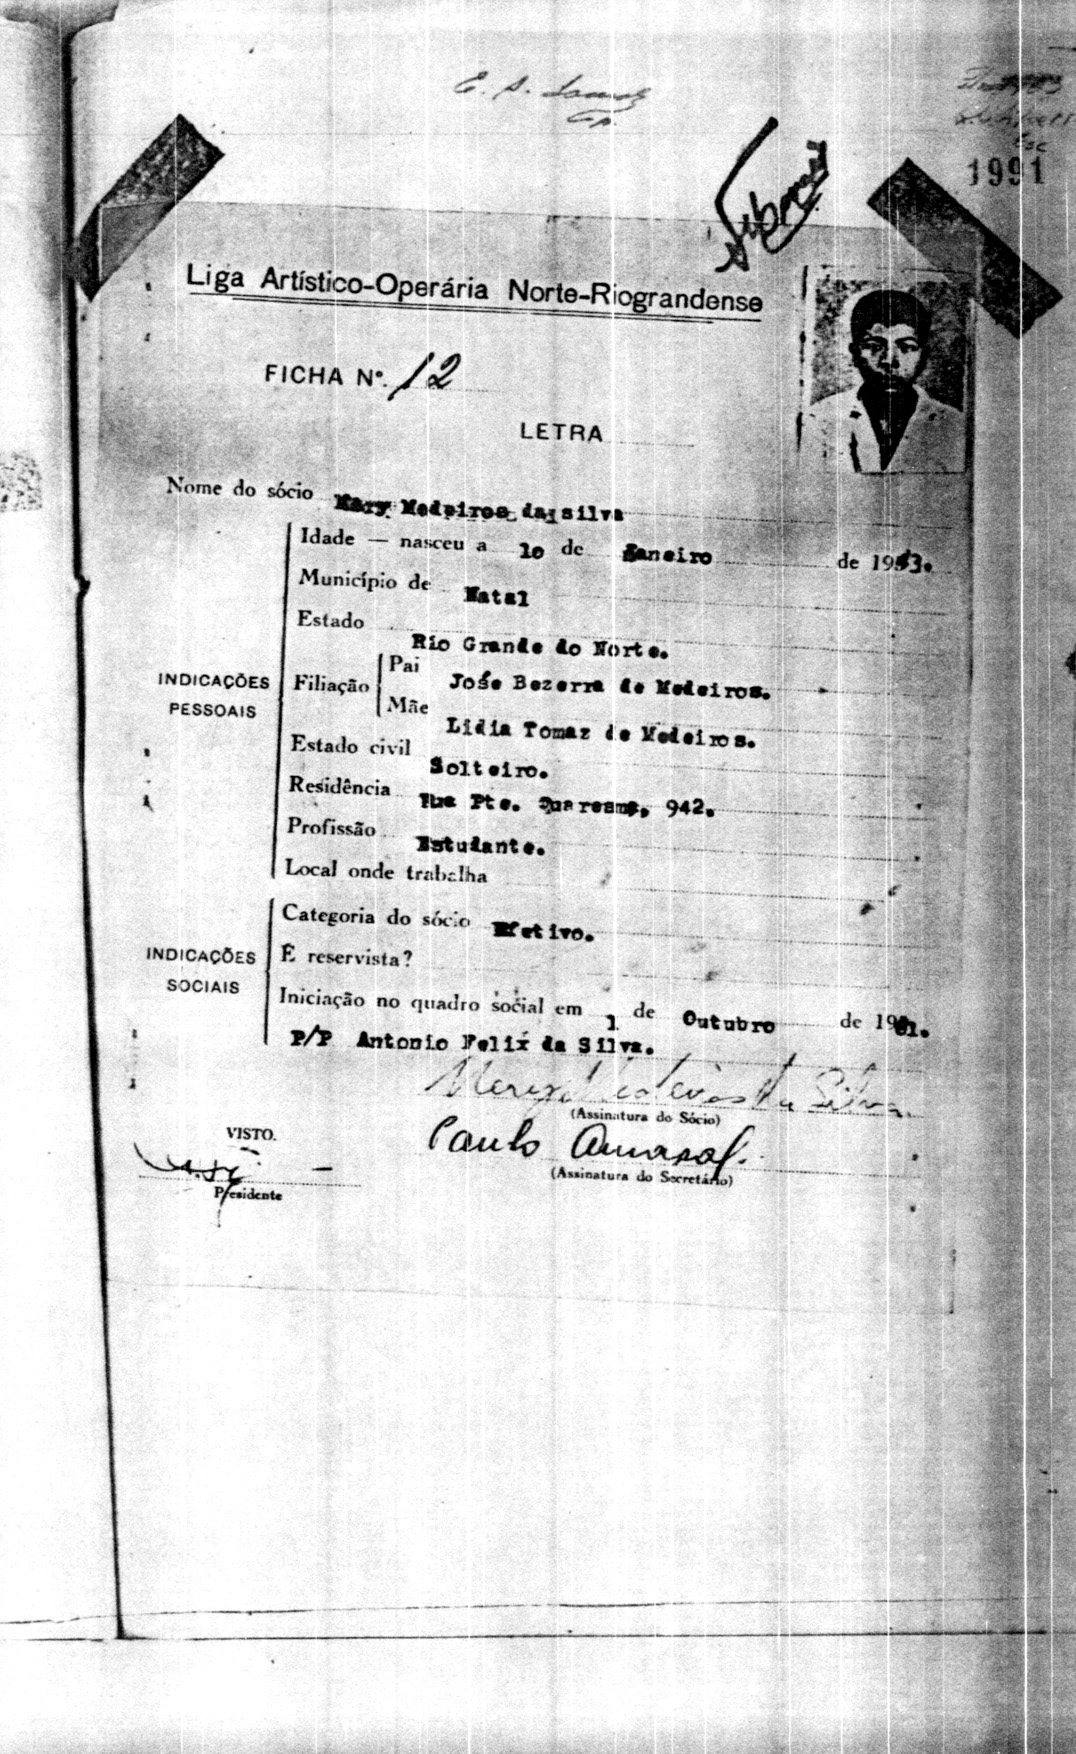 1991
Liga Artístico-Operária Norte-Riograndense
FICHA Nº. 12
LETRA
Nome do sócio Mary Medeiros da silva
Idade — nasceu a 10 de Janeiro de 1943.
Município de Natal
Estado Rio Grande do Norte.
INDICAÇÕES PESSOAIS
Filiação
Pai José Bezerra de Medeiros.
Mãe Lidia Tomaz de Medeiros.
Estado civil Solteiro.
Residência Rua Pte. Quaresma, 942.
Profissão Estudante.
Local onde trabalha
INDICAÇÕES SOCIAIS
Categoria do sócio Efetivo.
É reservista?
Iniciação no quadro social em 1 de Outubro de 1961.
P/P Antonio Felix da Silva.
Medeiros da Silva
(Assinatura do Sócio)
VISTO.
Paulo Amaral.
(Assinatura do Secretário)
Presidente